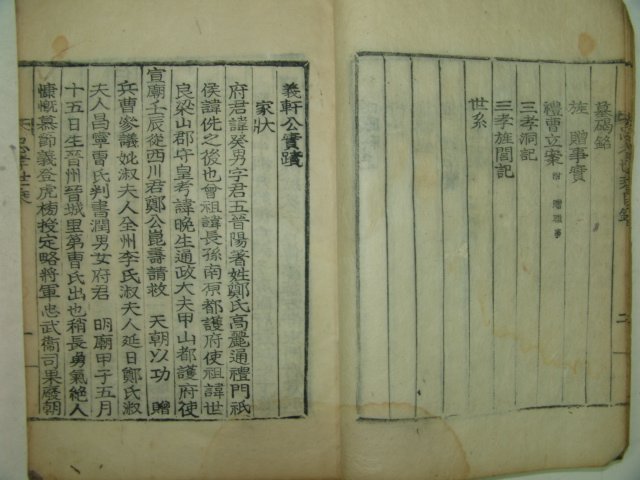 墓碣銘
旌 贈事實
禮曹立案
三孝洞記
三孝旌閭記
世系
義軒公實蹟
家狀
府君諱癸男字君五晉陽著姓鄭氏高麗通禮門祇
侯諱侁之後也曾祖諱長孫南原都護府使祖諱世
良梁山郡守皇考諱晚生通政大夫甲山都護府使
宣廟壬辰從西川君鄭公崑壽請救 天朝以功 贈
兵曹參議妣淑夫人全州李氏淑夫人延日鄭氏淑
夫人昌寧曹氏判書潤男女府君 明廟甲子五月
十五日生晉州晉城里第曹氏出也稍長勇氣絕人
慷慨慕節義登虎榜授定略將軍忠武衞司果歷朝